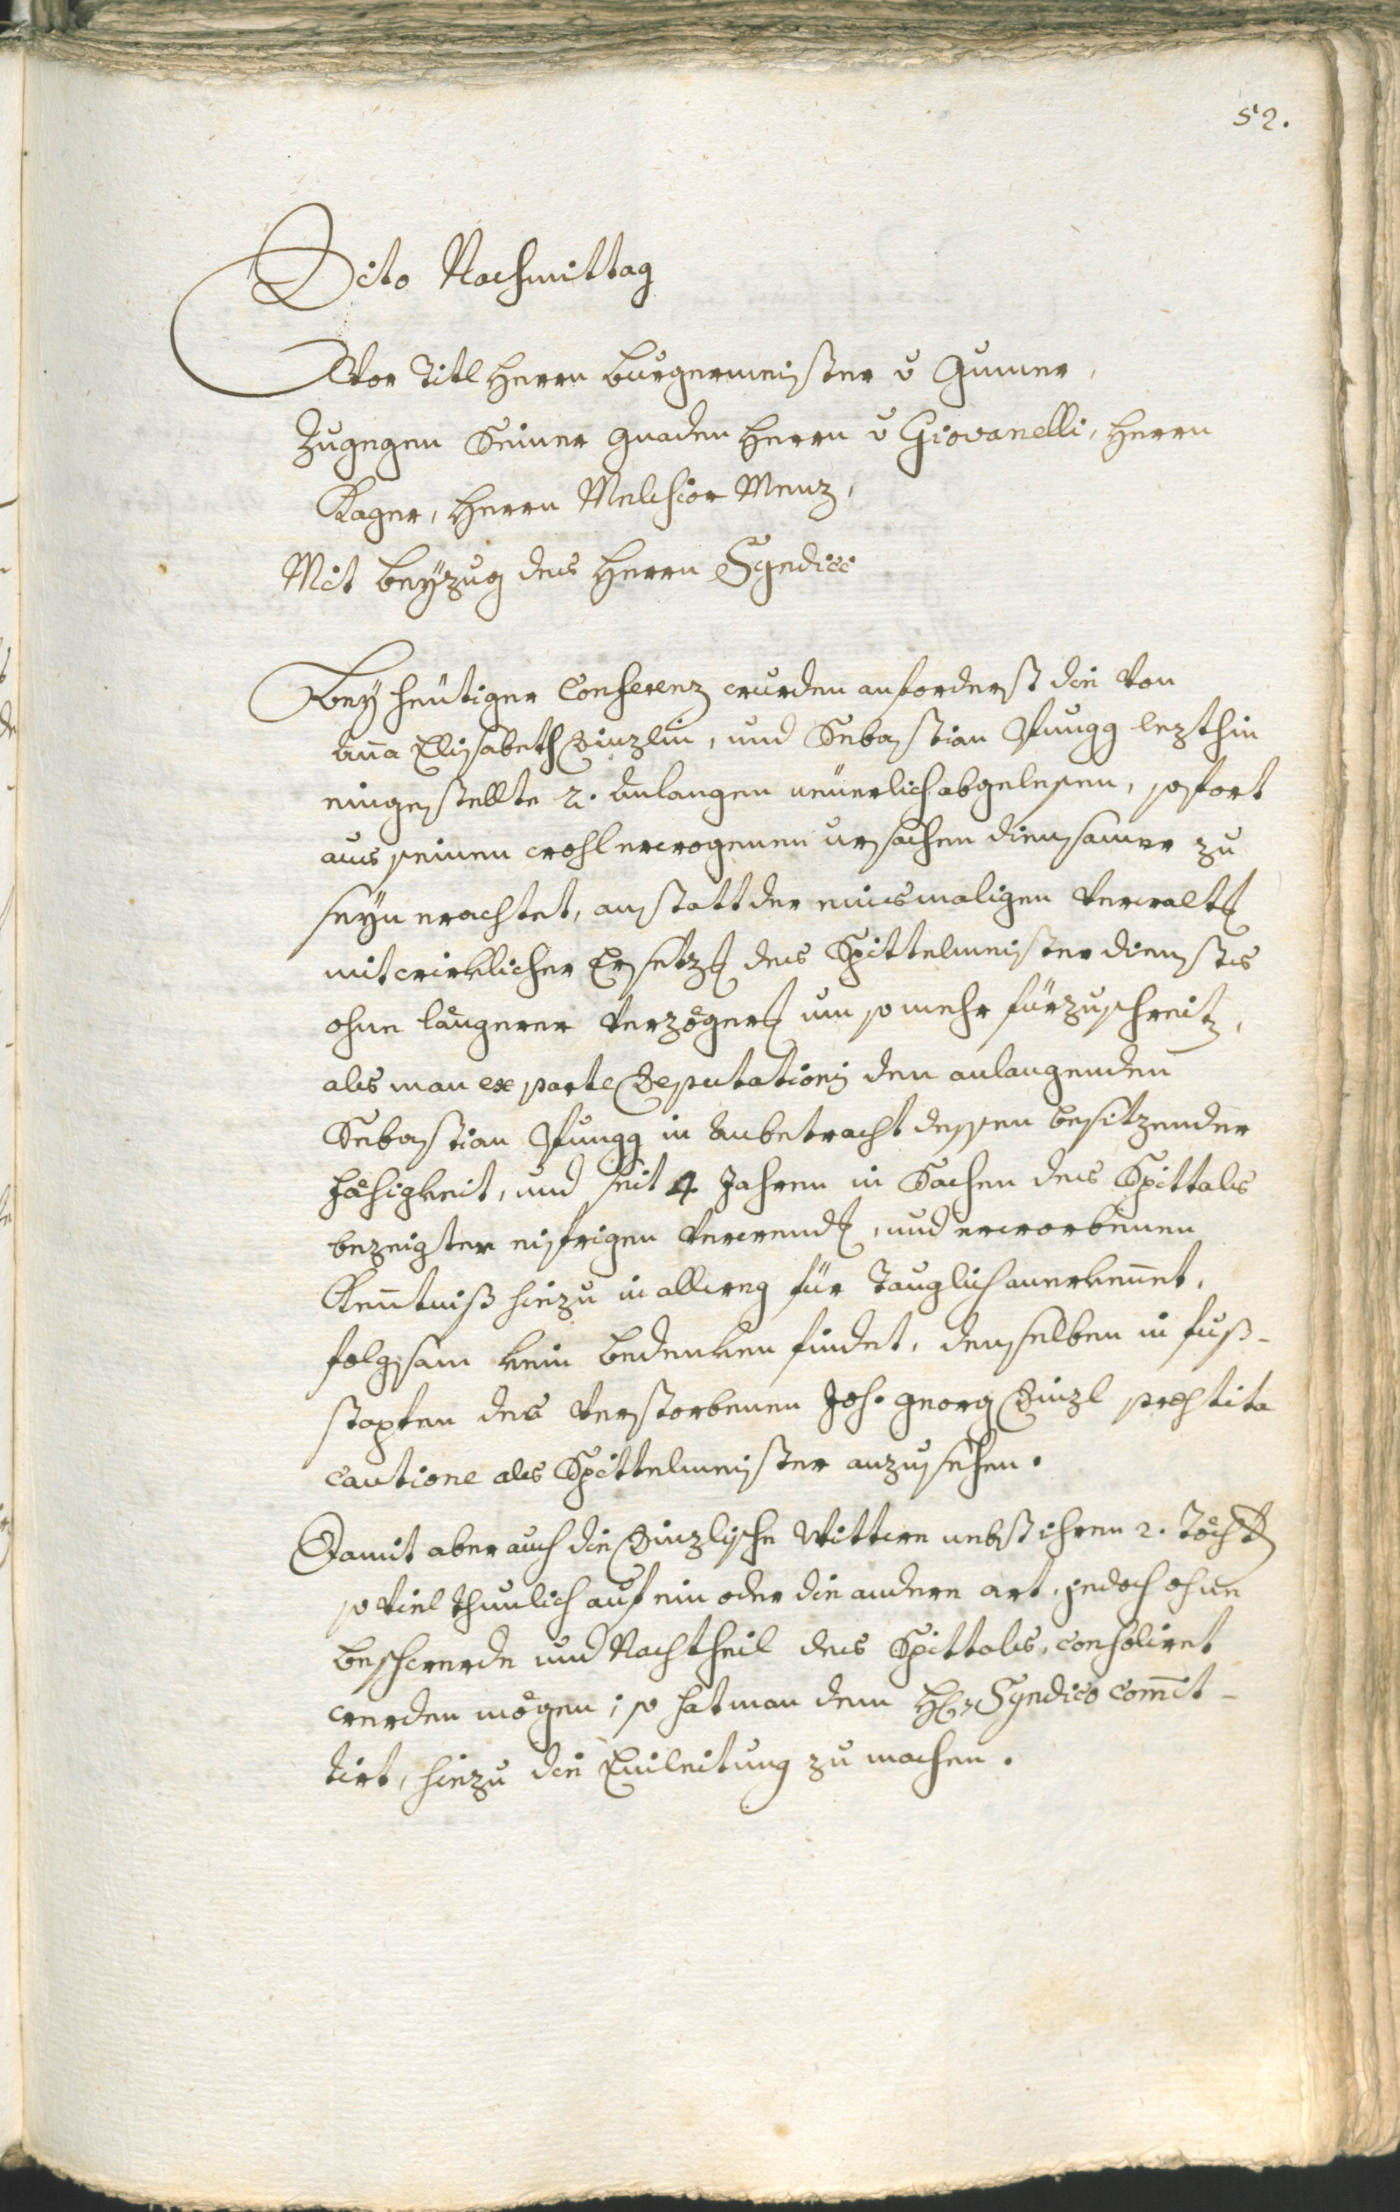 52.
Dito Nachmittag
Vor Titl Herrn burgermeister v Gumer,
Zugegen Seiner gnaden Herrn v Giovanelli, Herrn
Kager, Herrn Melchior Menz,
Mit beÿzug des Herrn Syndici
Beÿ heütiger Conferenz wurden anforderst die von
Anna Elisabeth Dinzlin, und Sebastian Pfungg lezthin
eingestellte 2. anlangen neüerlich abgelesen, sofort
aus seinen wohl erwogenen ursachen diensamer zu
seÿn erachtet, anstatt der einsmaligen Verwaltg
mit wirklicher Ersetzg des Spittelmeister dienstes
ohne längerer Verzögerg um so mehr fürzuschreitn,
als man ex parte Deputationis den anlangenden
Sebastian Pfungg in Anbetracht dessen besitzender
fähigkeit, und seit 4 Jahren in Sachen des Spittals
bezeigter eifrigen Verwendg, und erworbenen
Kentniß hiezu in allweg für Tauglich anerkennet,
folgsam kein bedenken findet, denselben in fuß-
stapfen des Verstorbenen Joh. Georg Dinzl prestita
cautione als Spittelmeister anzusehen.
Damit aber auch die Dinzlische Wittwe nebst ihren 2. Töcht
so viel thunlich auf ein oder die andere art, jedoch ohne
beschwerde und Nachtheil des Spittals, consoliret
werden mögen; so hat man dem H Syndico comit-
tirt, hiezu die Einleitung zu machen.